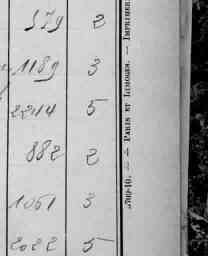 379 2
1189 3
2214 5
882 2
1051 3
2022 5
.700-10. — — PARIS ET LIMOGES. — IMPRIMER